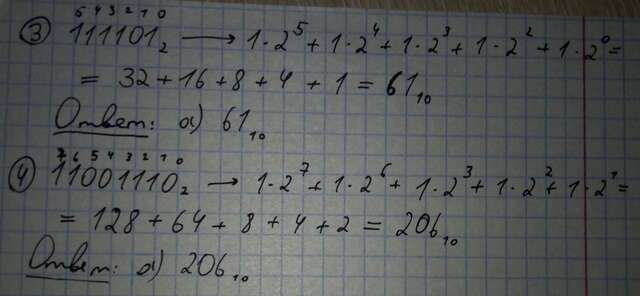 5 4 3 2 1 0
③ 111101₂ → 1·2⁵ + 1·2⁴ + 1·2³ + 1·2² + 1·2⁰ =
= 32 + 16 + 8 + 4 + 1 = 61₁₀
Ответ: а) 61₁₀
7 6 5 4 3 2 1 0
④ 11001110₂ → 1·2⁷ + 1·2⁶ + 1·2³ + 1·2² + 1·2¹ =
= 128 + 64 + 8 + 4 + 2 = 206₁₀
Ответ: а) 206₁₀